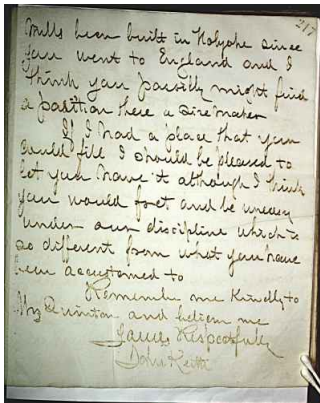 217
Mills been built in Holyoke since
you went to England and I
think you possibly might find
a position there a size maker
If I had a place that you
could fill I should be pleased to
let you have it although I think
you would fret and be uneasy
under our discipline which is
so different from what you have
been accustomed to
Remember me Kindly to
Mrs Quinton and believe me
Yours Respectfully
John Keith